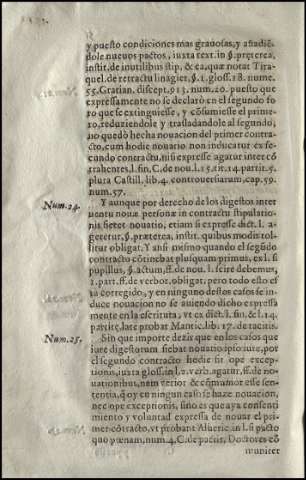 y puesto condiciones mas grauosas, y añadiẽ-
dole nueuos pactos, iuxta text. in §. præterea,
instit. de inutilibus stip. & ea, quæ notat Tira-
quel. de retractu linagier, §. 1. gloss. 18. nume.
55. Gratian. discept. 913. num. 20. puesto que
expressamente no se declarò en el segundo fo-
ro que se extinguiesse, y cõsumiesse el prime-
ro, reduziendole y trasladandole al segundo,
no quedò hecha nouacion del primer contra-
cto, cum hodie nouatio non inducatur ex se-
cundo contractu, nisi expresse agatur inter cõ
trahentes, l. fin. C. de nou. l. 15. tit. 14. partit. 5.
plura Castill. lib. 4. controuersiarum, cap. 59.
num. 57.
Num. 24.
Y aunque por derecho de los digestos inter
uentu nouæ personæ in contractu stipulatio-
nis fieret nouatio, etiam si expresse dict. l. a-
geretur, §. præterea, instit. quibus modis tol-
litur obligat. Y ansi mesmo quando el segũdo
contracto cõtinebat plus quam primus, ex l. si
pupillus, §. actum, ff. de nou. l. scire debemus,
1. part. ff. de verbor. obligat. pero todo esso es
ta corregido, y en ninguno destos casos se in-
duce nouacion no se auiendo dicho expressa
mente en la escritura, vt ex dict. l. fin. & l. 14.
partitæ, late probat Mantic. lib. 17. de tacitis.
Num. 25.
Sin que importe dezir que en los casos que
iure digestorum fiebat nouatio ipso iure, por
el segundo contracto hodie fit ope exce-
ptionis, iuxta gloss. in l. 2. verb. agatur, ff. de no-
uationibus, nam verior & cõmunior esse sen-
tentia, q̃ oy en ningun caso se haze nouacion,
nec ope exceptionis, sino es que aya consenti
miento y voluntad expressa de nouar el pri-
mer cõtracto, vt probant Alueric. in l. si pacto
quo pœnam, num. 4. C. de pactis, Doctores cõ
muniter